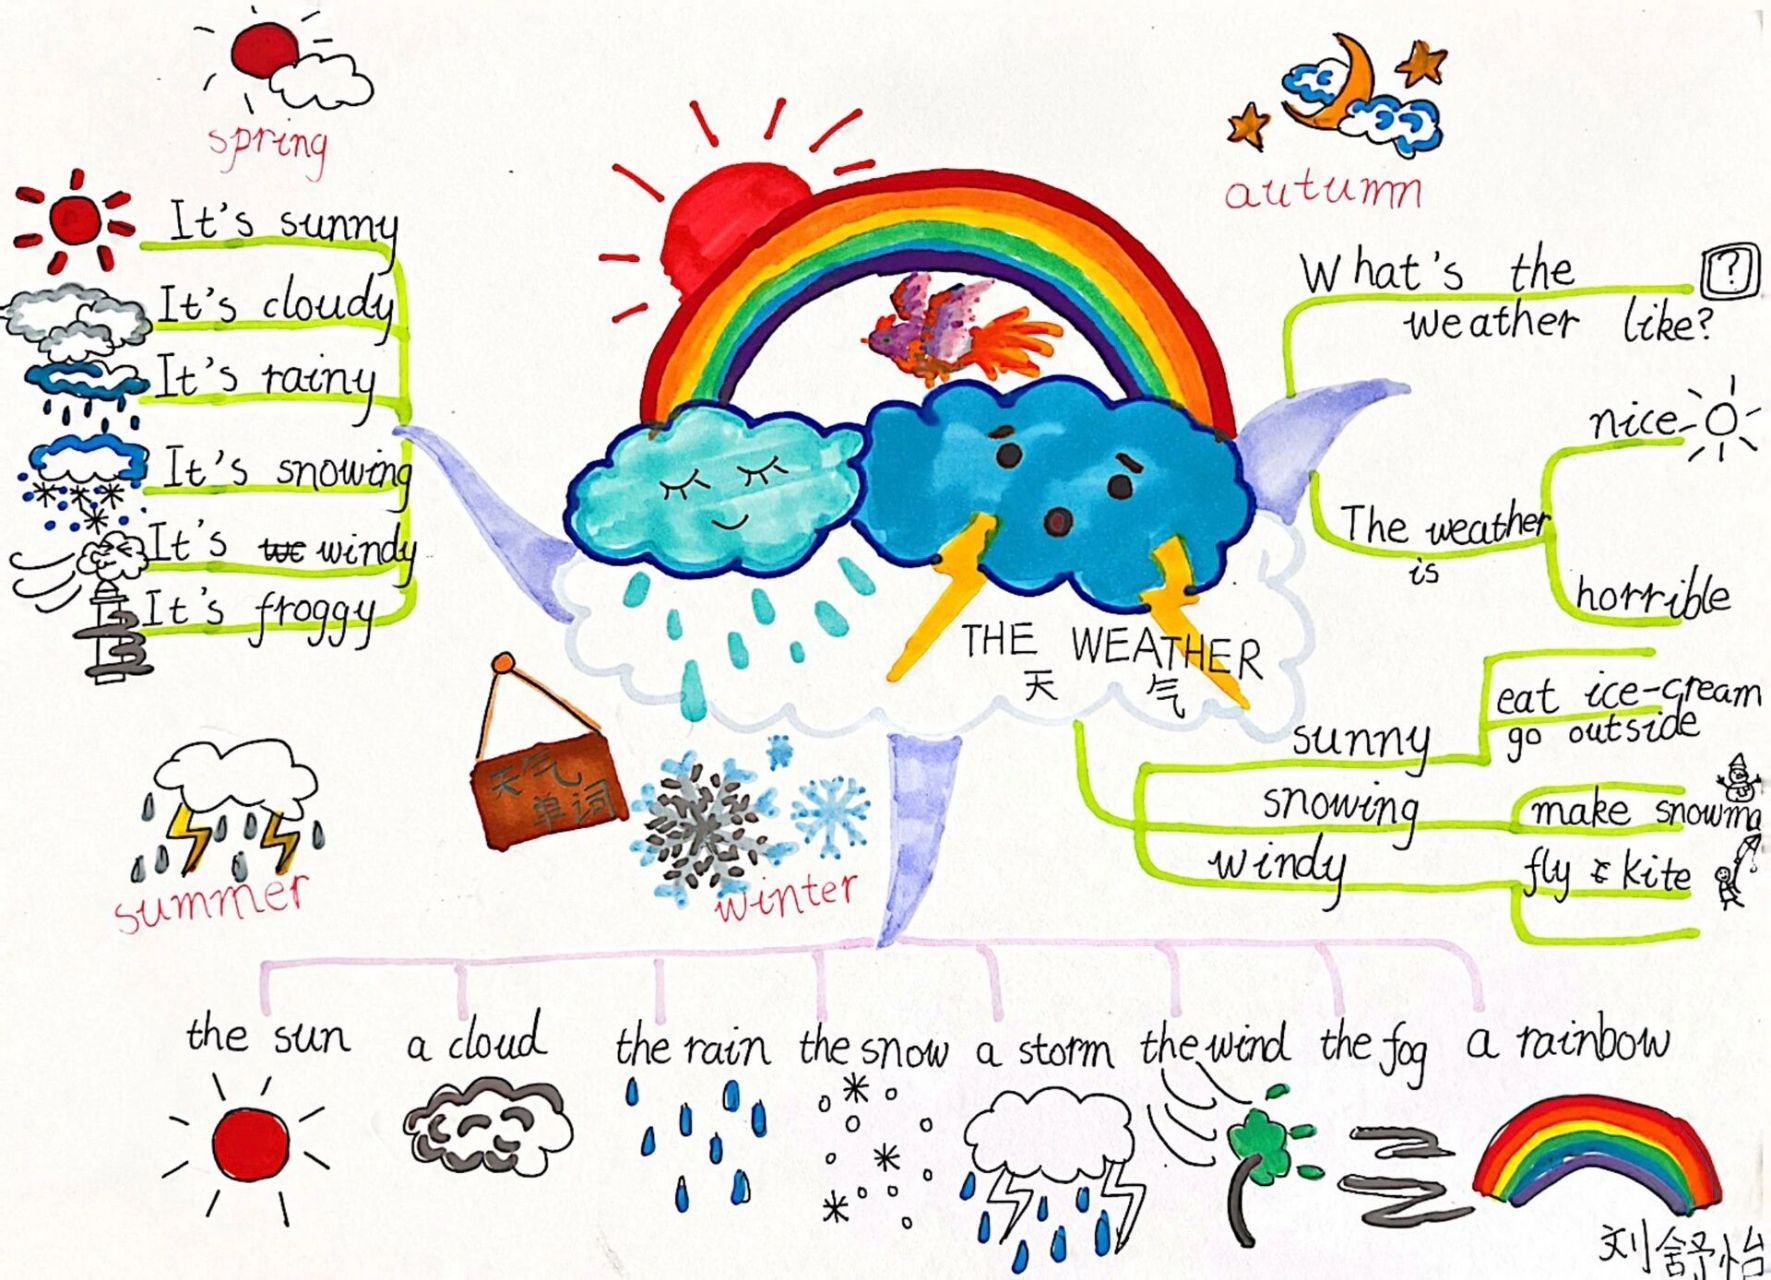 spring
It's sunny
It's cloudy
It's rainy
It's snowing
It's windy
It's froggy
summer
天气
单词
winter
THE WEATHER
天 气
autumn
What's the ?
weather like?
The weather
is
nice
horrible
sunny
eat ice-cream
go outside
snowing
make snowma
windy
fly a kite
the sun
a cloud
the rain
the snow
a storm
the wind
the fog
a rainbow
刘舒怡